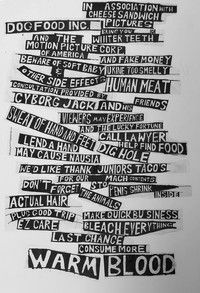 IN ASSOCIATION WITH
CHEESE SANDWICH
PICTURES
DOG FOOD INC.
BRING YOU
AND THE WHITER TEETH
MOTION PICTURE CORP.
OF AMERICA
BEWARE OF SOFT BABY AND FAKE MONEY
& URINE TOO SMELLY
OTHER SIDE EFFECTS
HUMAN MEAT
CONSULTATION PROVIDED BY
CYBORG JACK AND HIS FRIENDS
VIEWERS MAY EXPERIENCE
SWEAT OF HAND AND FEET
AND THE LUCKY FORTUNE
CALL LAWYER
LEND A HAND
HELP FIND FOOD
DIG HOLE
MAY CAUSE NAUSIA
WE'D LIKE THANK JUNIORS TACOS
FOR OUR MACH CONTENTS
DON'T FORGET STD
PENIS SHRINK
INSIDE
ACTUAL HAIR
THE ANIMALS
PLUS GOOD TRIP
MAKE QUICK BUSINESS
EZ CARE
BLEACH EVERYTHING
LAST CHANCE
CONSUME MORE
WARM BLOOD